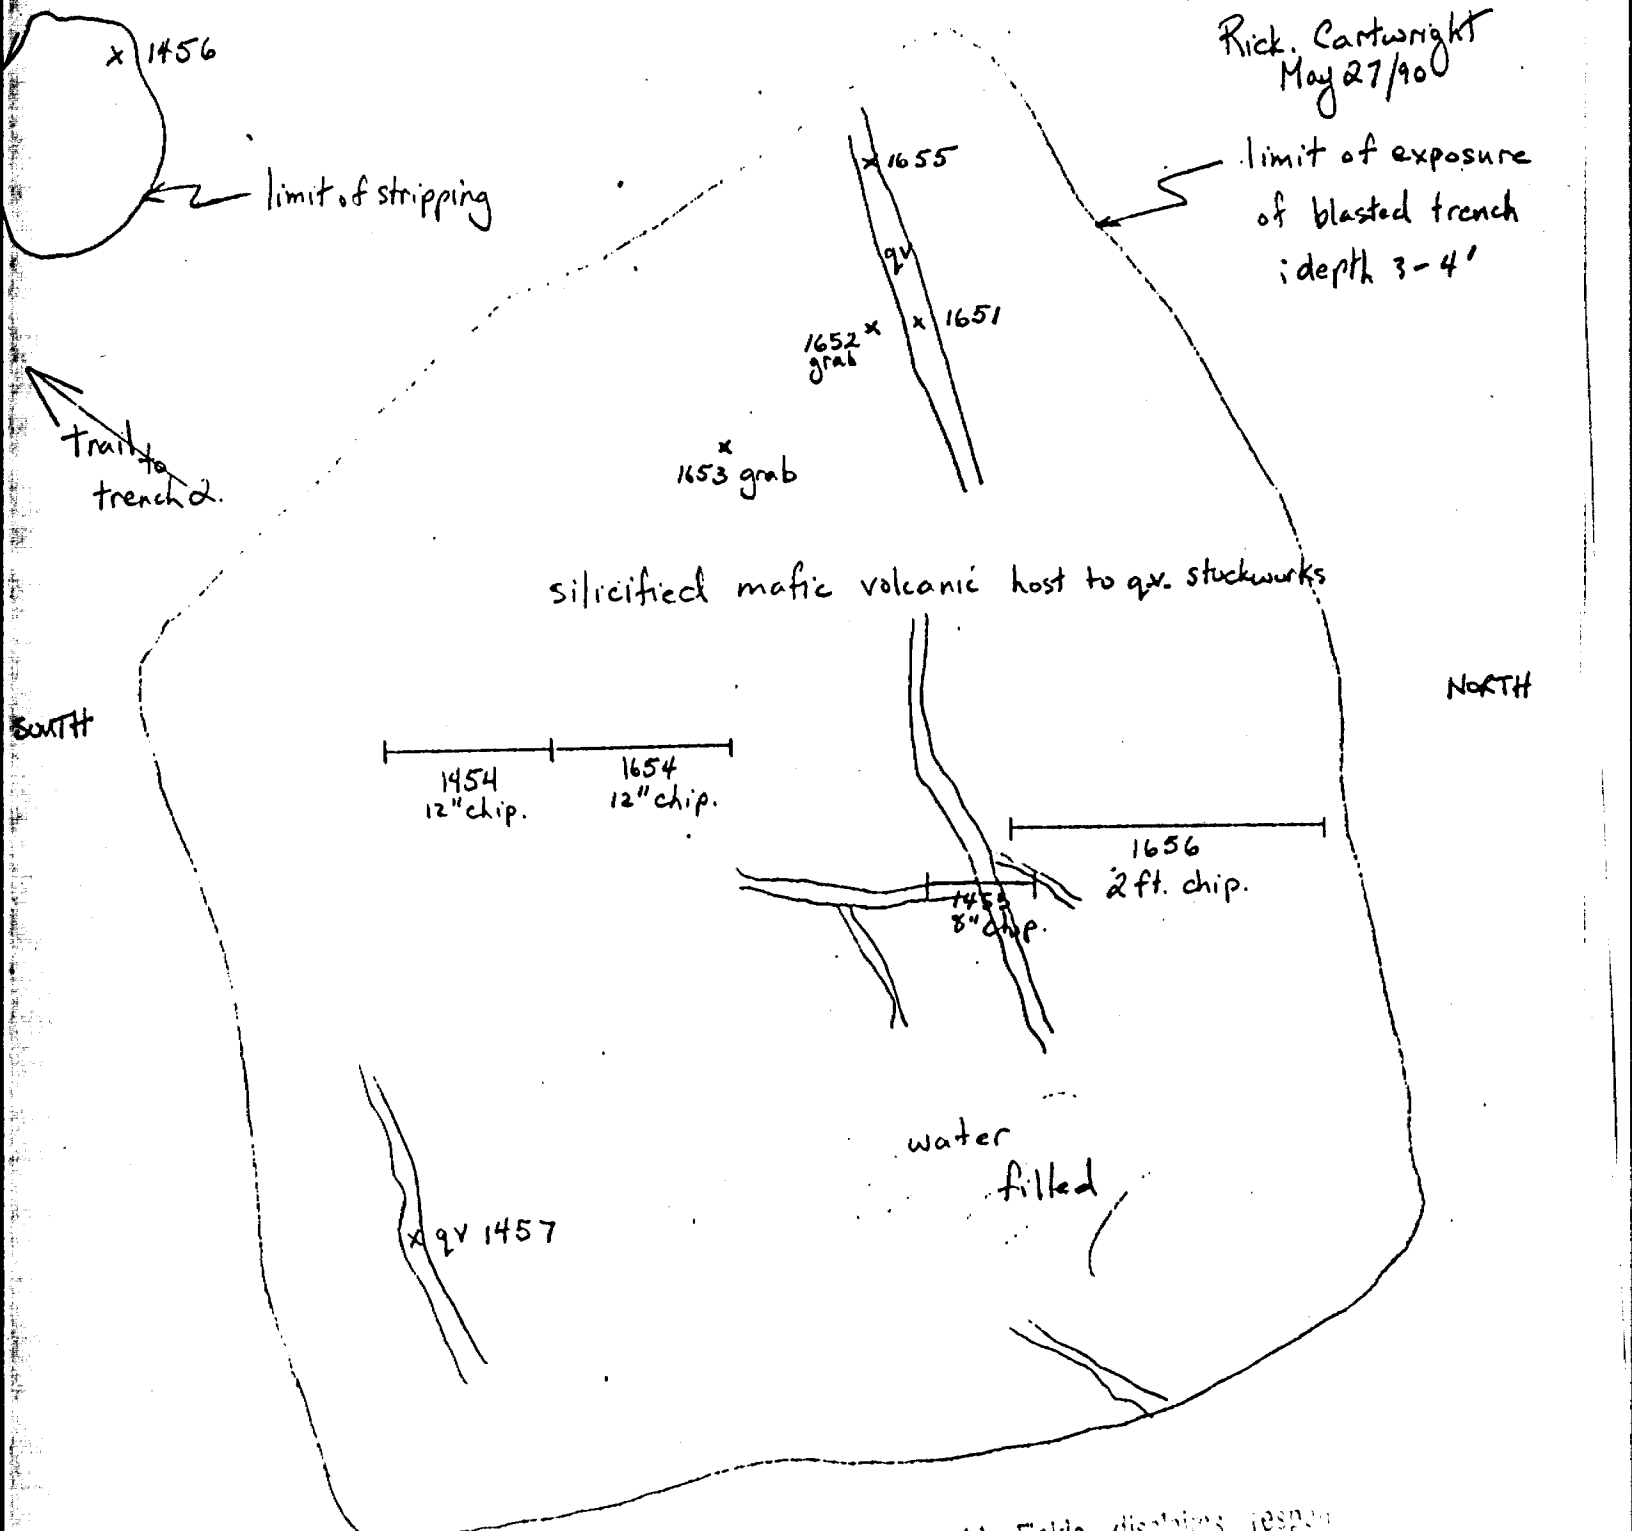 Rick. Cartwright
May 27/90
x 1456
limit of stripping
limit of exposure
of blasted trench
; depth 3-4'
x 1655
qv
1652 x
grab
x 1651
trail to
trench 2.
x
1653 grab
silicified mafic volcanic host to q.v. stockworks
SOUTH
NORTH
1454
12" chip.
1654
12" chip.
1656
2 ft. chip.
1455
8" chip.
water
filled
x qv 1457
disclaims